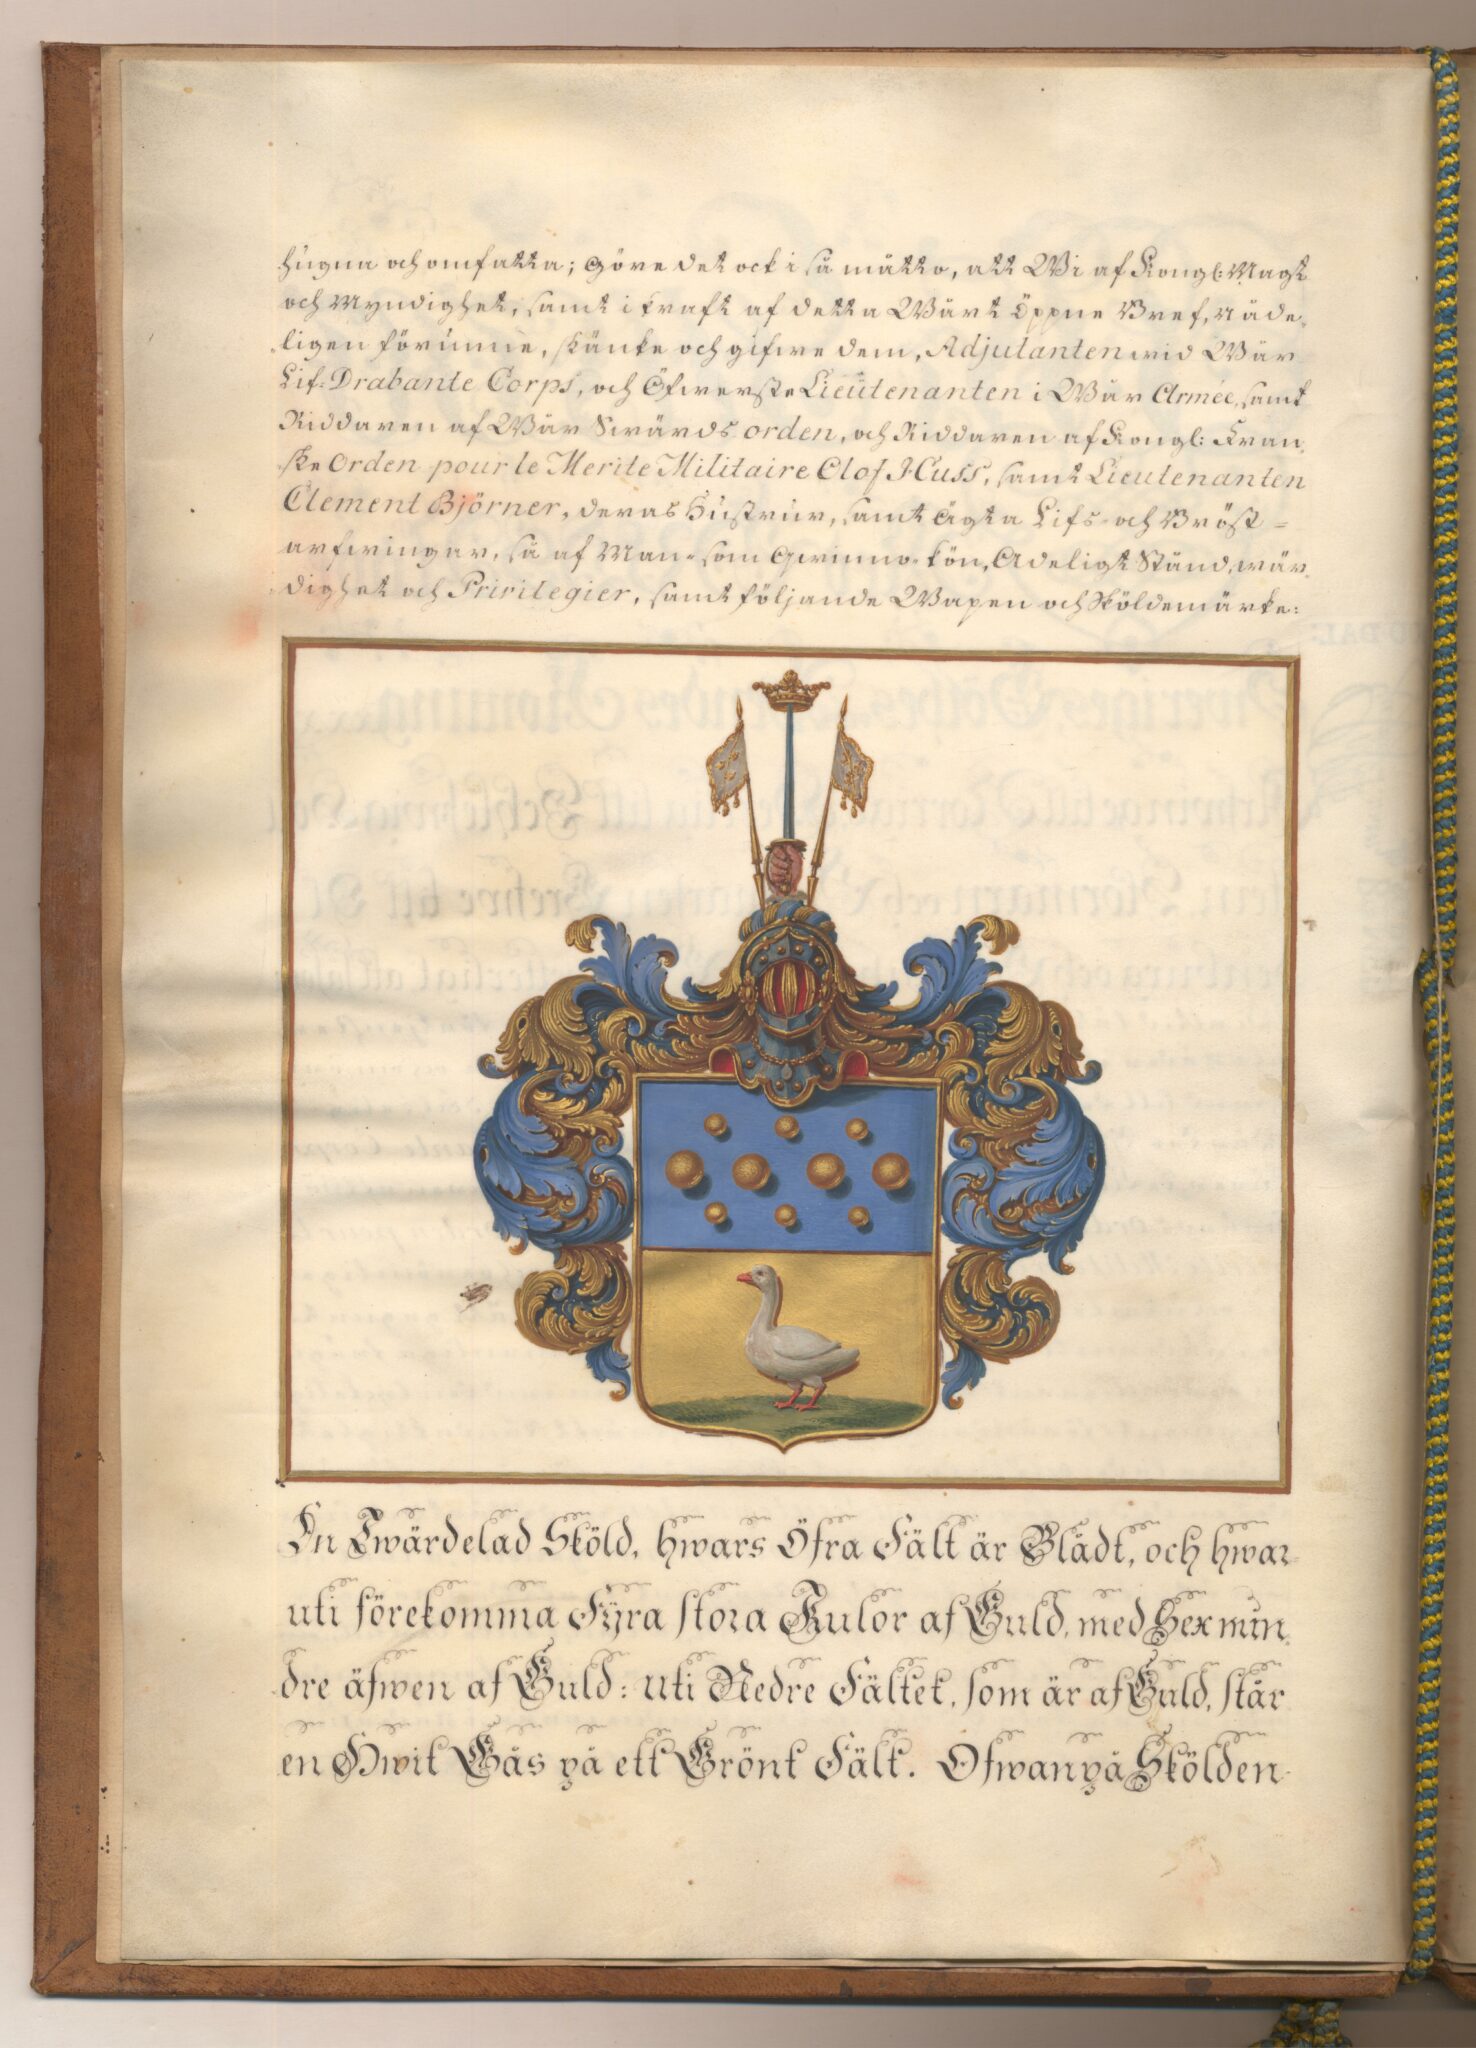 hugna och omfatta; göre det ock i så mätto, att Wi af Kongl: Magt
och Myndighet, samt i kraft af detta Wårt Öppne Bref, Nåde-
ligen förunne, skänke och gifwe dem, Adjutanten wid Wår
Lif-Drabante Corps, och Öfwerste Lieutenanten i Wår Armée, samt
Riddaren af Wår Swärds orden, och Riddaren af Kongl: Fran-
ske Orden pour le Merite Militaire Olof Huss, samt Lieutenanten
Clement Björner, deras Hustrur, samt Ägta Lifs- och Bröst-
arfwingar, så af Man- som Qwinno-kön, Adeligt Stånd, wär-
dighet och Privilegier, samt följande Wapen och Sköldemärke:
En Twärdelad Sköld, hwars Öfra Fält är Blådt, och hwar-
uti förekomma Fyra stora Kulor af Guld, med Sex min-
dre äfwen af Guld: uti Nedre Fältet, som är af Guld, står
en Hwit Gås på ett Grönt Fält. Ofwanpå Skölden